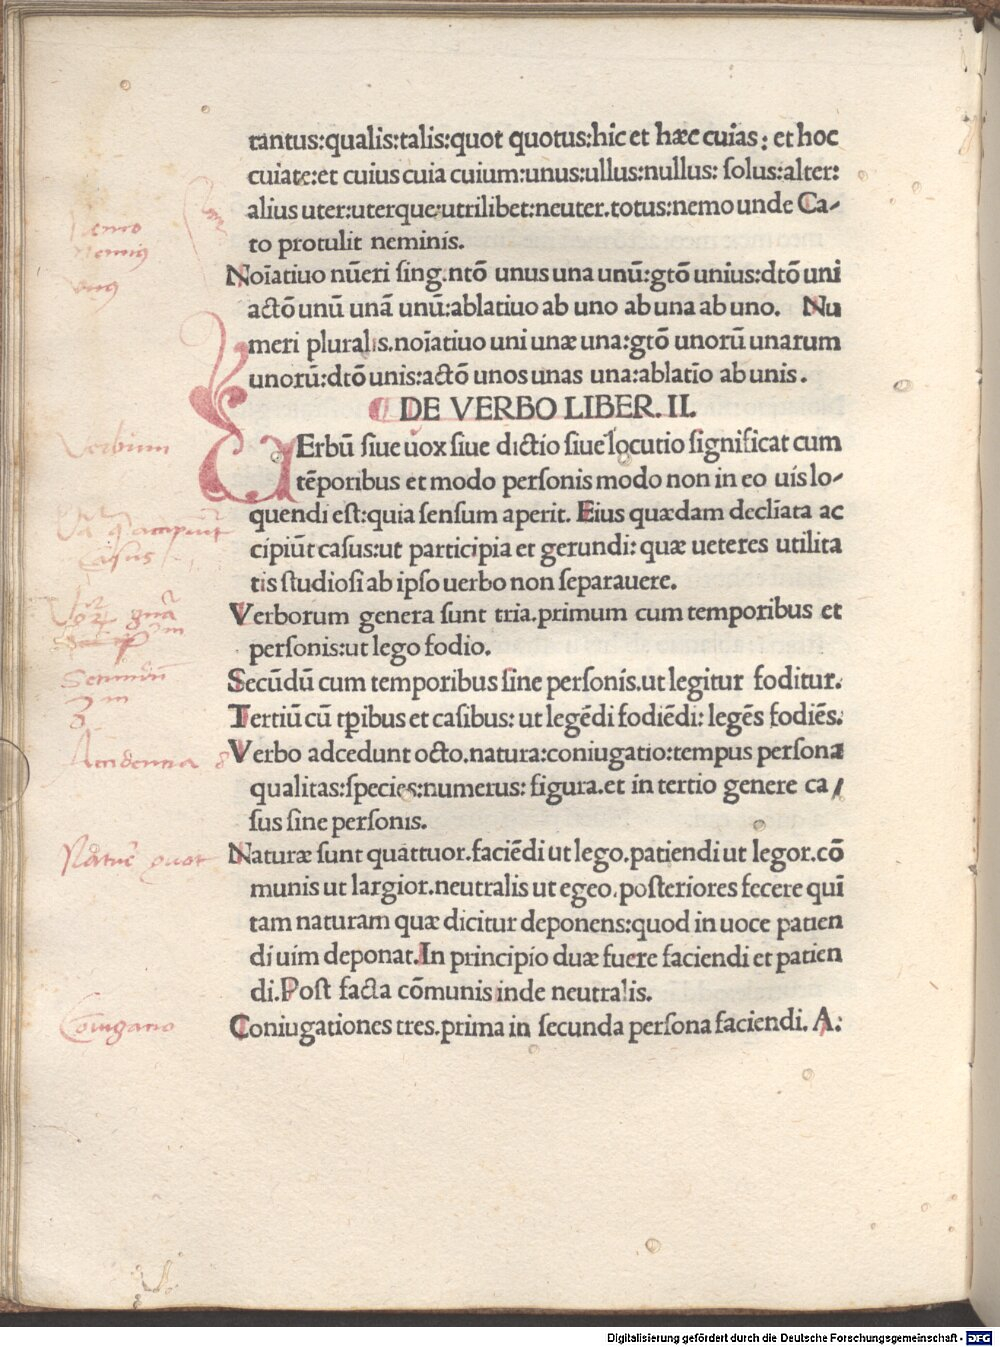 tantus:qualis:talis:quot quotus:hic et hæc cuias: et hoc
cuiate:et cuius cuia cuium:unus:ullus:nullus: ſolus:alter:
alius uter:uterque:utrilibet:neuter.totus:nemo unde Ca-
to protulit neminis.
Nemo
Noīatiuo nūeri ſing.ntō unus una unū:gtō unius:dtō uni
actō unū unā unū:ablatiuo ab uno ab una ab uno. Nu
meri pluralis.noīatiuo uni unæ una:gtō unorū unarum
unorū:dtō unis:actō unos unas una:ablatīo ab unis.
DE VERBO LIBER. II.
Verbum
UErbū ſiue uox ſiue dictio ſiue locutio ſignificat cum
tēporibus et modo perſonis modo non in eo uis lo-
quendi eſt:quia ſenſum aperit. Eius quædam decliata ac
Casus
cipiūt caſus:ut participia et gerundi: quæ ueteres utilita
tis ſtudioſi ab ipſo uerbo non ſeparauere.
Verborum genera ſunt tria.primum cum temporibus et
perſonis:ut lego fodio.
Secūdū cum temporibus ſine perſonis.ut legitur foditur.
Tertiū cū tꝑibus et caſibus: ut legēdi fodiēdi: legēs fodiēs.
Accidencia 8
Verbo adcedunt octo.natura:coniugatio:tempus perſona
qualitas:ſpecies:numerus: figura.et in tertio genere ca/
ſus ſine perſonis.
Nature quot
Naturæ ſunt quattuor.faciēdi ut lego.patiendi ut legor.cō
munis ut largior.neutralis ut egeo.poſteriores fecere quī
tam naturam quæ dicitur deponens:quod in uoce patien
di uim deponat.In principio duæ fuere faciendi et patien
di.Poſt facta cōmunis inde neutralis.
Coniugatio
Coniugationes tres.prima in ſecunda perſona faciendi. A:
Digitalisierung gefördert durch die Deutsche Forschungsgemeinschaft - DFG